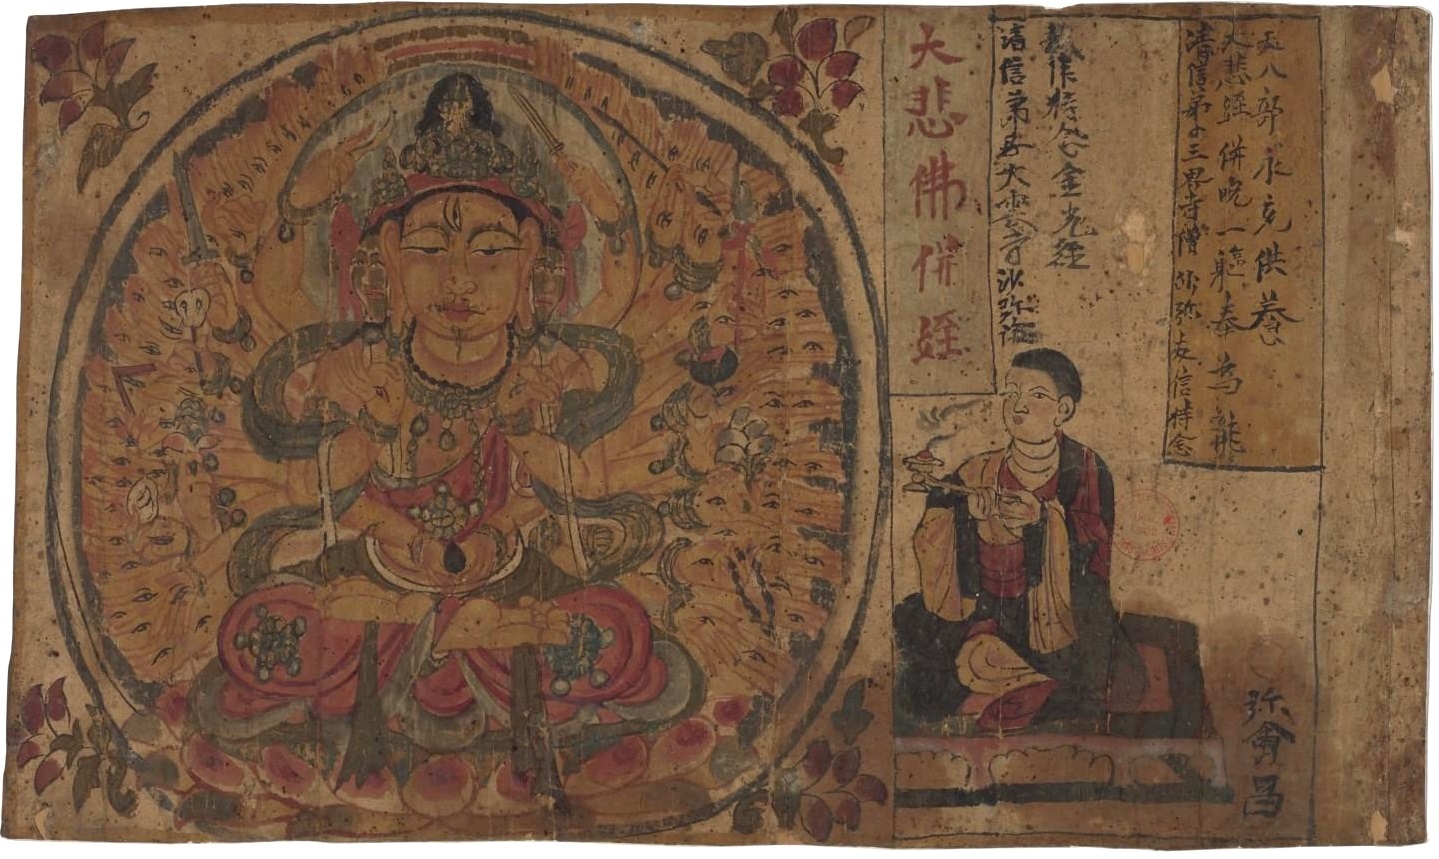 大悲佛併經
清信弟子大雲寺沙弥
作持念金光經
清信弟子三界寺僧沙弥友信持念
大悲經併咒一軀奉為龍
天八部永充供養
弥
昌